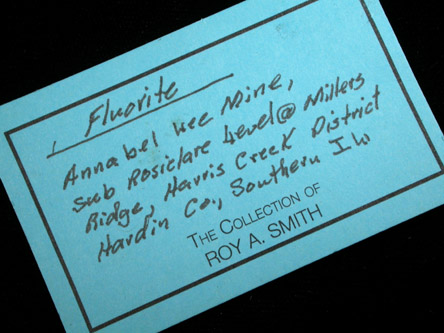 Fluorite
Annabel Lee Mine,
Sub Rosiclare Level @ Millers
Ridge, Harris Creek District
Hardin Co., Southern ILL
THE COLLECTION OF
ROY A. SMITH